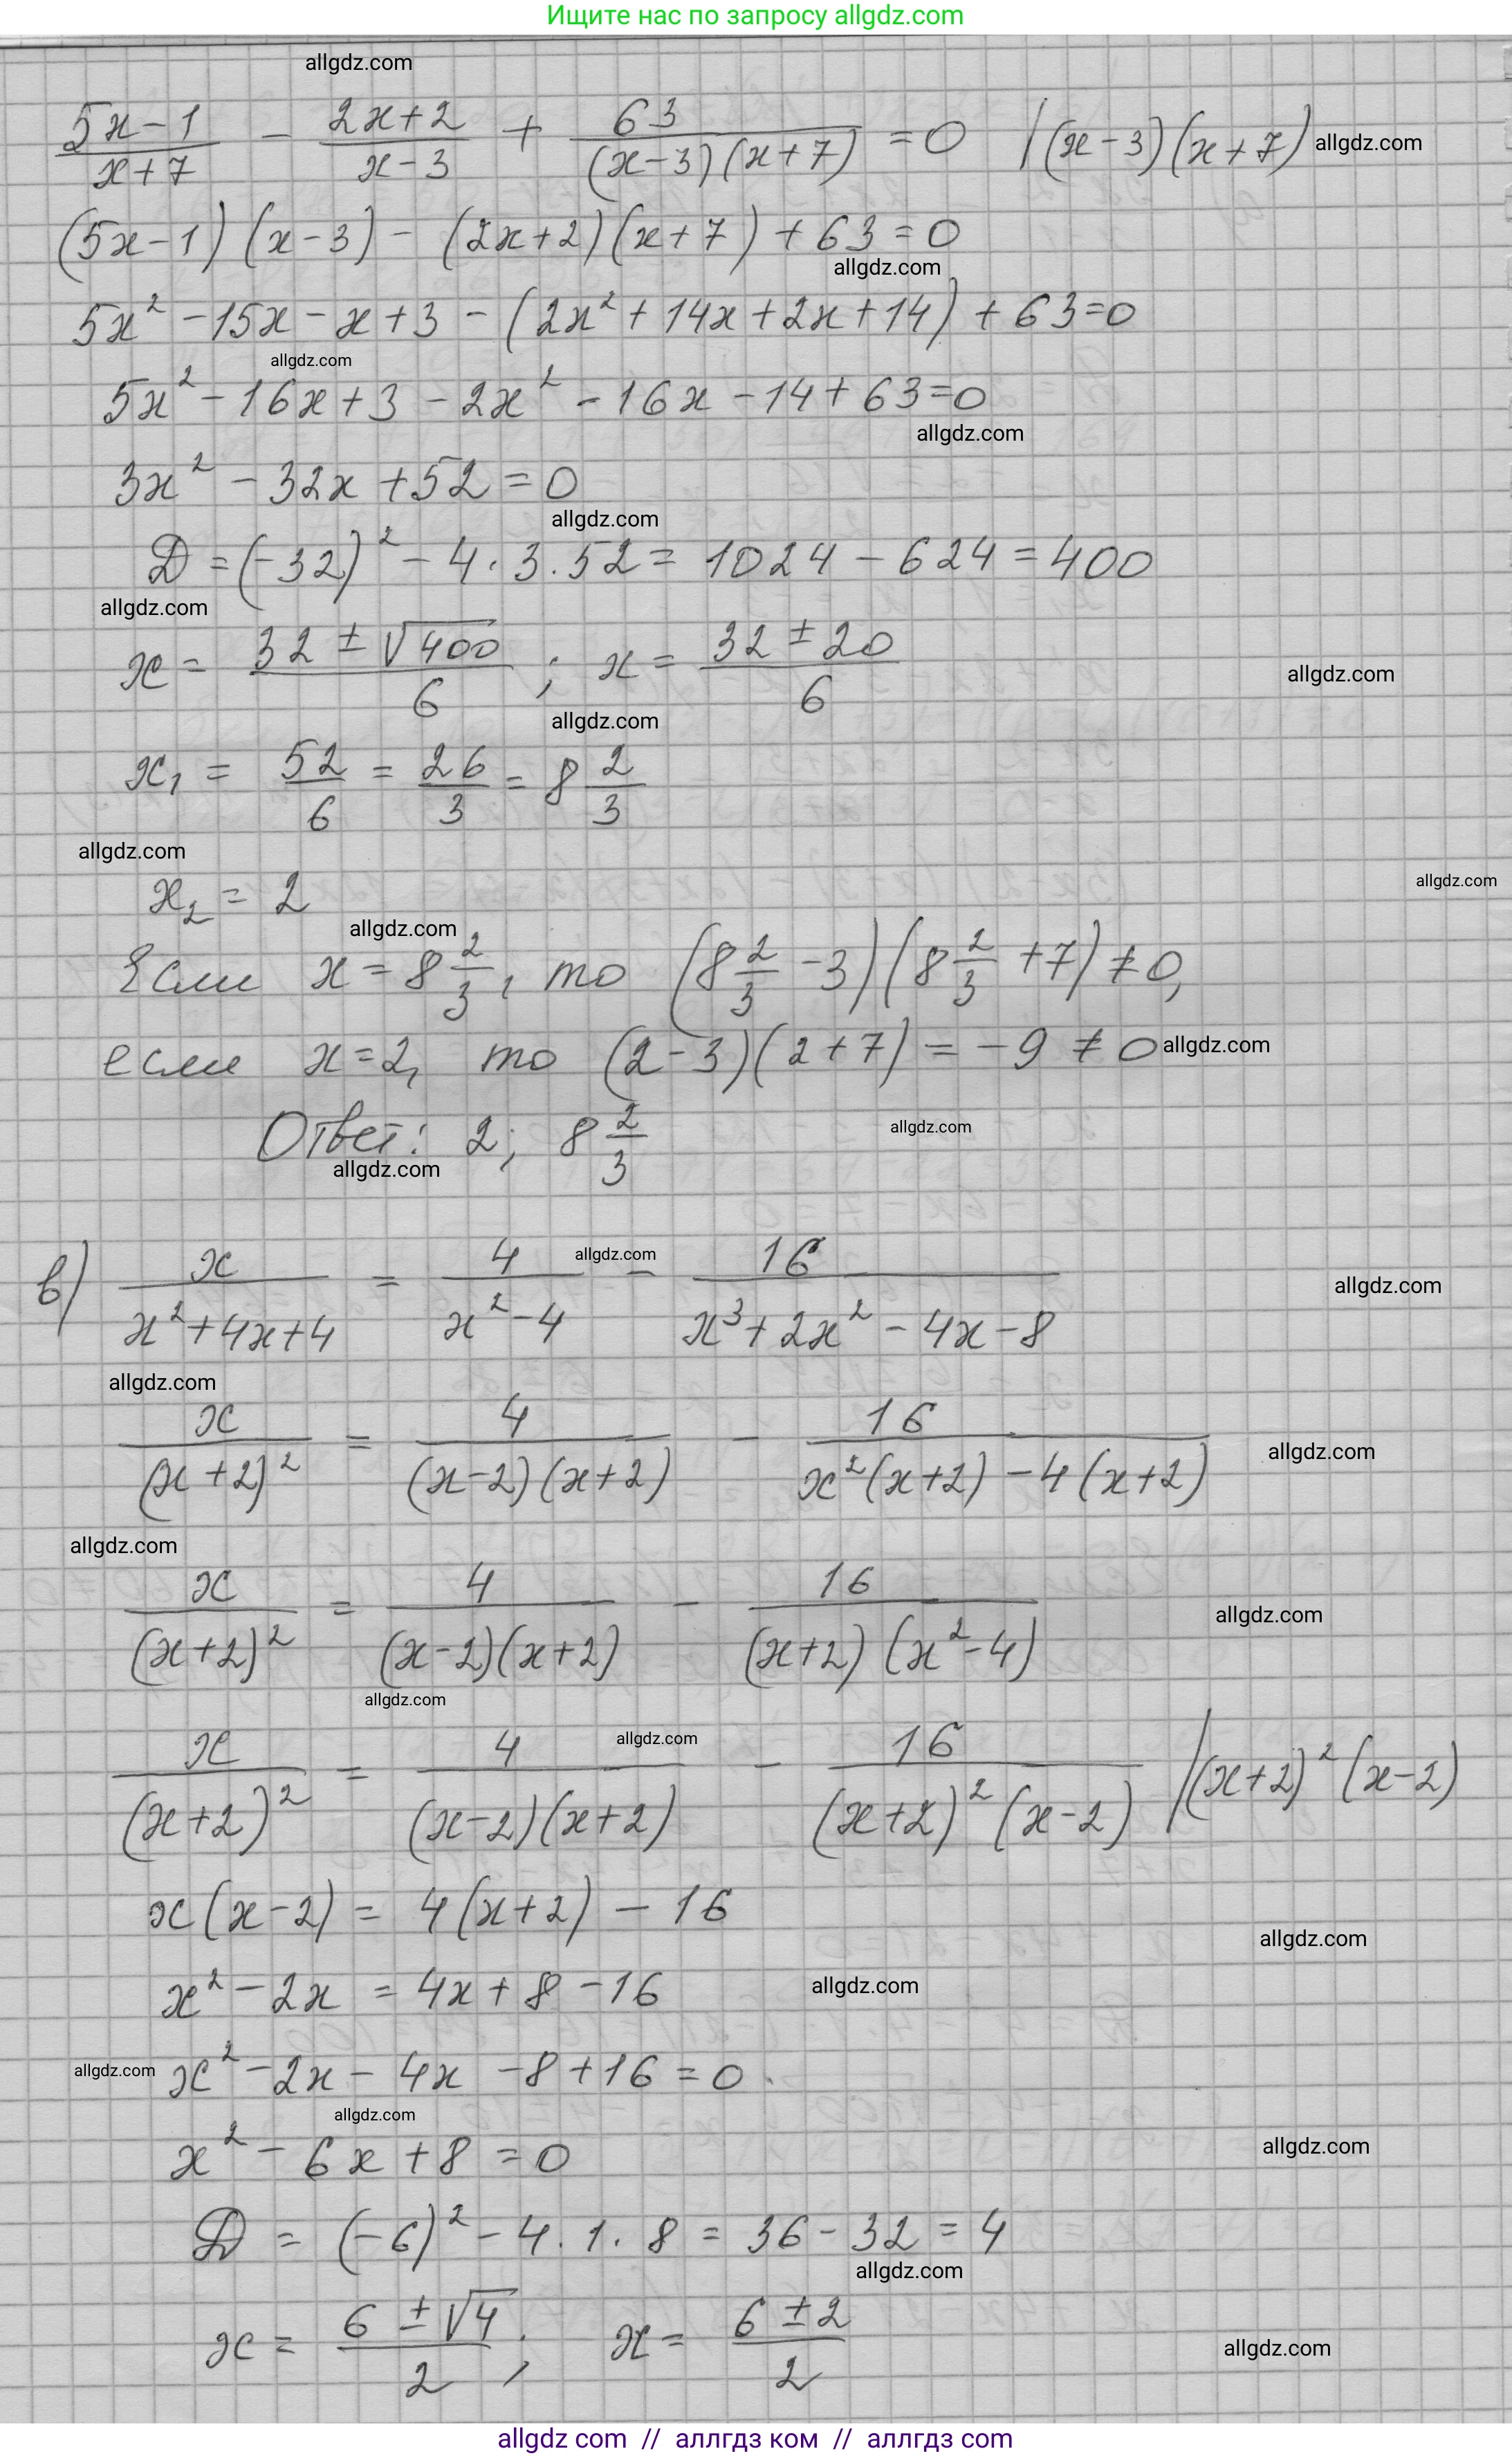 Ищите нас по запросу allgdz.com
allgdz.com
(5x-1)/(x+7) - (2x+2)/(x-3) + 63/((x-3)(x+7)) = 0 |(x-3)(x+7) allgdz.com
(5x-1)(x-3) - (2x+2)(x+7) + 63 = 0
allgdz.com
5x² - 15x - x + 3 - (2x² + 14x + 2x + 14) + 63 = 0
allgdz.com
5x² - 16x + 3 - 2x² - 16x - 14 + 63 = 0
allgdz.com
3x² - 32x + 52 = 0
allgdz.com
D = (-32)² - 4 · 3 · 52 = 1024 - 624 = 400
allgdz.com
x = (32 ± √400)/6 ; x = (32 ± 20)/6 allgdz.com
allgdz.com
x₁ = 52/6 = 26/3 = 8 2/3
allgdz.com
x₂ = 2 allgdz.com
allgdz.com
Если x = 8 2/3, то (8 2/3 - 3)(8 2/3 + 7) ≠ 0,
если x = 2, то (2-3)(2+7) = -9 ≠ 0 allgdz.com
Ответ: 2; 8 2/3 allgdz.com
allgdz.com
в) x/(x²+4x+4) = 4/(x²-4) - 16/(x³+2x²-4x-8) allgdz.com
allgdz.com
allgdz.com
x/(x+2)² = 4/((x-2)(x+2)) - 16/(x²(x+2)-4(x+2)) allgdz.com
allgdz.com
x/(x+2)² = 4/((x-2)(x+2)) - 16/((x+2)(x²-4)) allgdz.com
allgdz.com
allgdz.com
x/(x+2)² = 4/((x-2)(x+2)) - 16/((x+2)²(x-2)) |(x+2)²(x-2)
x(x-2) = 4(x+2) - 16
allgdz.com
x² - 2x = 4x + 8 - 16 allgdz.com
allgdz.com x² - 2x - 4x - 8 + 16 = 0
allgdz.com
x² - 6x + 8 = 0 allgdz.com
D = (-6)² - 4 · 1 · 8 = 36 - 32 = 4
allgdz.com
x = (6 ± √4)/2 ; x = (6 ± 2)/2 allgdz.com
allgdz com // аллгдз ком // аллгдз com